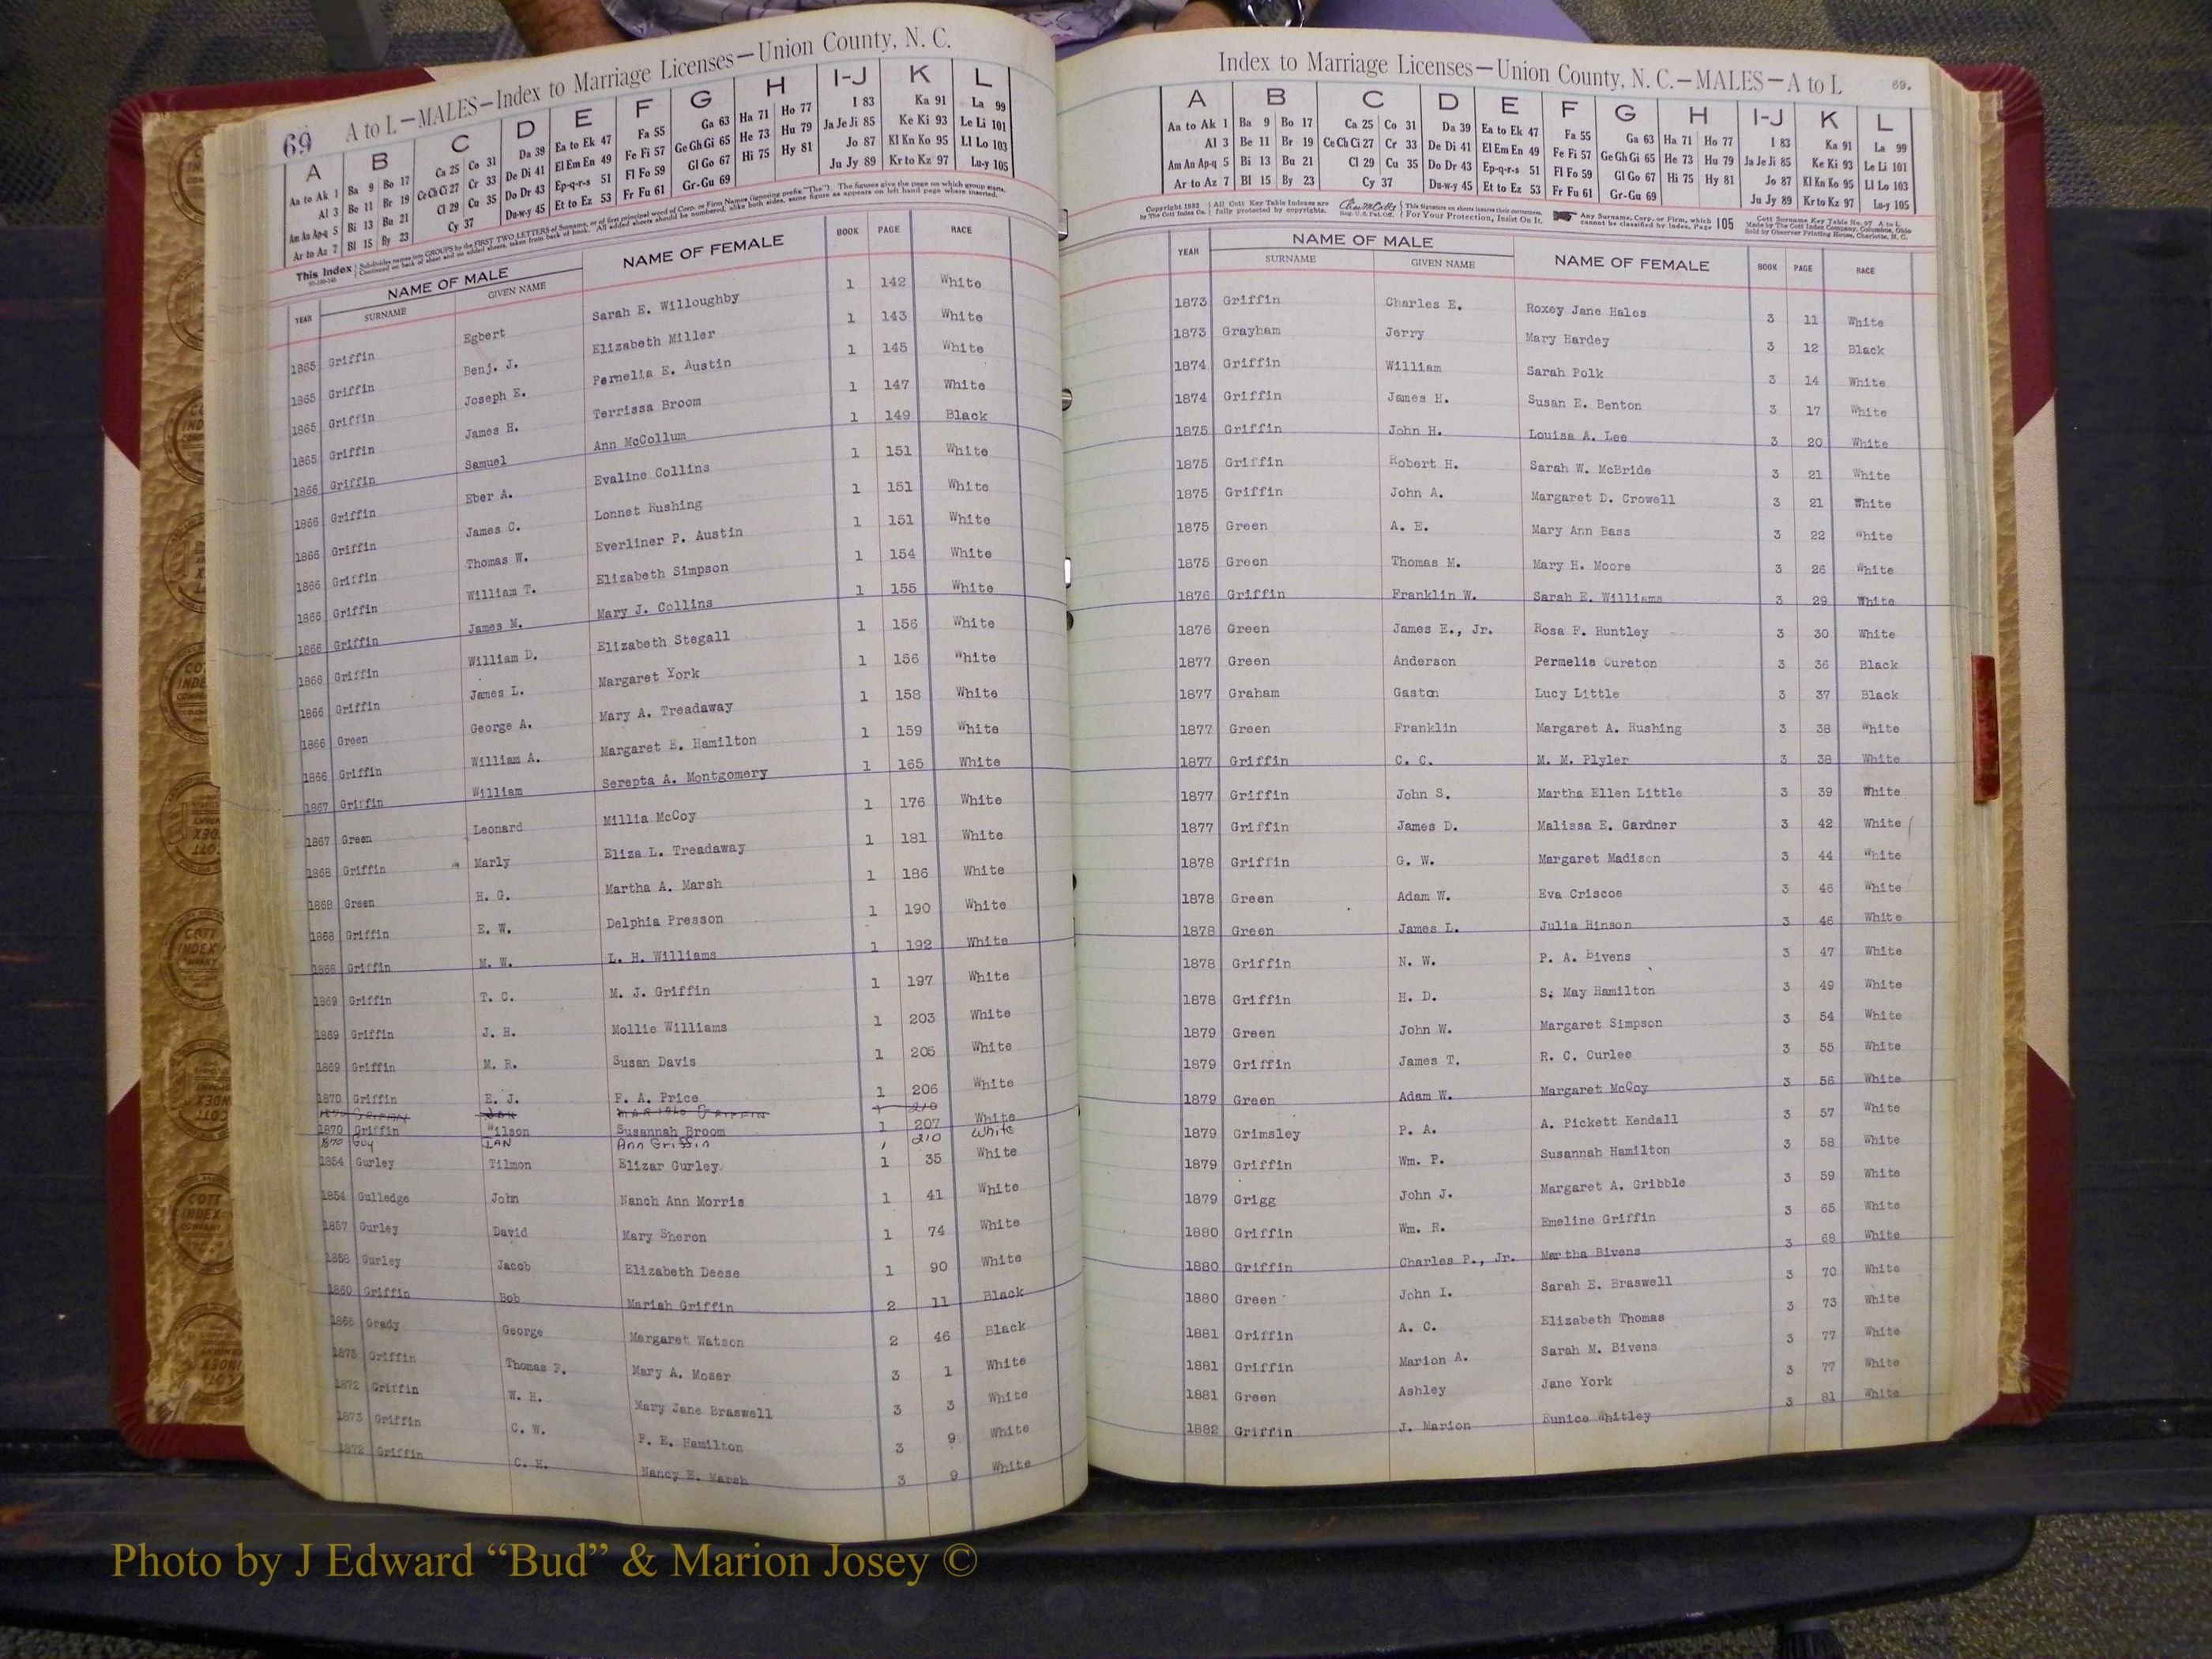 69 A to L—MALES—Index to Marriage Licenses—Union County, N. C.
A B C D E F G H I-J K L
Aa to Ak 1 Ba 9 Bo 17 Ca 25 Co 31 Da 39 Ea to Ek 47 Fa 55 Ga 63 Ha 71 Ho 77 I 83 Ka 91 La 99
Al 3 Be 11 Br 19 Ce Ch Ci 27 Cr 33 De Di 41 El Em En 49 Fe Fi 57 Ge Gh Gi 65 He 73 Hu 79 Ja Je Ji 85 Ke Ki 93 Le Li 101
Am An Ap-q 5 Bi 13 Bu 21 Cl 29 Cu 35 Do Dr 43 Ep-q-r-s 51 Fl Fo 59 Gl Go 67 Hi 75 Hy 81 Jo 87 Kl Kn Ko 95 Ll Lo 103
Ar to Az 7 Bl 15 By 23 Cy 37 Du-w-y 45 Et to Ez 53 Fr Fu 61 Gr-Gu 69 Ju Jy 89 Kr to Kz 97 Lu-y 105
This Index Subdivides names into GROUPS by the FIRST TWO LETTERS of Surname, or of first principal word of Corp. or Firm Names (ignoring prefix "The"). The figures give the page on which group starts.
Continued on back of sheet and on added sheets, taken from back of book. All added sheets should be numbered, alike both sides, same figure as appears on left hand page where inserted.
YEAR NAME OF MALE NAME OF FEMALE BOOK PAGE RACE
SURNAME GIVEN NAME
1865 Griffin Egbert Sarah E. Willoughby 1 142 White
1865 Griffin Benj. J. Elizabeth Miller 1 143 White
1865 Griffin Joseph E. Pernelia E. Austin 1 145 White
1865 Griffin James H. Terrissa Broom 1 147 White
1866 Griffin Samuel Ann McCollum 1 149 Black
1866 Griffin Eber A. Evaline Collins 1 151 White
1866 Griffin James C. Lonnet Rushing 1 151 White
1866 Griffin Thomas W. Everliner P. Austin 1 151 White
1866 Griffin William T. Elizabeth Simpson 1 154 White
1866 Griffin James M. Mary J. Collins 1 155 White
1866 Griffin William D. Elizabeth Stegall 1 156 White
1866 Griffin James L. Margaret York 1 156 White
1866 Green George A. Mary A. Treadaway 1 158 White
1866 Griffin William A. Margaret E. Hamilton 1 159 White
1867 Griffin William Serepta A. Montgomery 1 165 White
1867 Green Leonard Millia McCoy 1 176 White
1868 Griffin Marly Eliza L. Treadaway 1 181 White
1868 Green H. G. Martha A. Marsh 1 186 White
1868 Griffin E. W. Delphia Presson 1 190 White
1868 Griffin M. W. L. H. Williams 1 192 White
1869 Griffin T. C. M. J. Griffin 1 197 White
1869 Griffin J. H. Mollie Williams 1 203 White
1869 Griffin M. R. Susan Davis 1 205 White
1870 Griffin E. J. F. A. Price 1 206 White
1870 Griffin 1 210
1870 Griffin Wilson Susannah Broom 1 207 White
1870 Guy IAN Ann Griffin 1 210 White
1854 Gurley Tilmon Elizar Gurley 1 35 White
1854 Gulledge John Nanch Ann Morris 1 41 White
1857 Gurley David Mary Sheron 1 74 White
1858 Gurley Jacob Elizabeth Deese 1 90 White
1860 Griffin Bob Mariah Griffin 2 11 Black
1866 Grady George Margaret Watson 2 46 Black
1875 Griffin Thomas F. Mary A. Moser 3 1 White
1872 Griffin W. H. Mary Jane Braswell 3 3 White
1873 Griffin C. W. F. E. Hamilton 3 9 White
1872 Griffin C. H. Nancy E. Marsh 3 9 White
Index to Marriage Licenses—Union County, N. C.—MALES—A to L 69.
A B C D E F G H I-J K L
Aa to Ak 1 Ba 9 Bo 17 Ca 25 Co 31 Da 39 Ea to Ek 47 Fa 55 Ga 63 Ha 71 Ho 77 I 83 Ka 91 La 99
Al 3 Be 11 Br 19 Ce Ch Ci 27 Cr 33 De Di 41 El Em En 49 Fe Fi 57 Ge Gh Gi 65 He 73 Hu 79 Ja Je Ji 85 Ke Ki 93 Le Li 101
Am An Ap-q 5 Bi 13 Bu 21 Cl 29 Cu 35 Do Dr 43 Ep-q-r-s 51 Fl Fo 59 Gl Go 67 Hi 75 Hy 81 Jo 87 Kl Kn Ko 95 Ll Lo 103
Ar to Az 7 Bl 15 By 23 Cy 37 Du-w-y 45 Et to Ez 53 Fr Fu 61 Gr-Gu 69 Ju Jy 89 Kr to Kz 97 Lu-y 105
Copyright 1932 All Cott Key Table Indexes are This Signature on sheets insures their correctness. Any Surname, Corp. or Firm, which 105 Cott Surname Key Table No. 97 A to L
by The Cott Index Co. fully protected by copyrights. Reg. U.S. Pat. Off. For Your Protection, Insist On It. cannot be classified by Index, Page Made by The Cott Index Company, Columbus, Ohio
Sold by Observer Printing House, Charlotte, N. C.
YEAR NAME OF MALE NAME OF FEMALE BOOK PAGE RACE
SURNAME GIVEN NAME
1873 Griffin Charles E. Roxey Jane Hales 3 11 White
1873 Grayham Jerry Mary Hardey 3 12 Black
1874 Griffin William Sarah Polk 3 14 White
1874 Griffin James H. Susan E. Benton 3 17 White
1875 Griffin John H. Louisa A. Lee 3 20 White
1875 Griffin Robert H. Sarah W. McBride 3 21 White
1875 Griffin John A. Margaret D. Crowell 3 21 White
1875 Green A. E. Mary Ann Bass 3 22 White
1875 Green Thomas M. Mary H. Moore 3 26 White
1876 Griffin Franklin W. Sarah E. Williams 3 29 White
1876 Green James E., Jr. Rosa F. Huntley 3 30 White
1877 Green Anderson Permelia Cureton 3 36 Black
1877 Graham Gaston Lucy Little 3 37 Black
1877 Green Franklin Margaret A. Rushing 3 38 White
1877 Griffin C. C. M. M. Plyler 3 38 White
1877 Griffin John S. Martha Ellen Little 3 39 White
1877 Griffin James D. Malissa E. Gardner 3 42 White
1878 Griffin G. W. Margaret Madison 3 44 White
1878 Green Adam W. Eva Criscoe 3 46 White
1878 Green James L. Julia Hinson 3 46 White
1878 Griffin N. W. P. A. Bivens 3 47 White
1878 Griffin H. D. S. May Hamilton 3 49 White
1879 Green John W. Margaret Simpson 3 54 White
1879 Griffin James T. R. C. Curlee 3 55 White
1879 Green Adam W. Margaret McCoy 3 56 White
1879 Grimsley P. A. A. Pickett Kendall 3 57 White
1879 Griffin Wm. P. Susannah Hamilton 3 58 White
1879 Grigg John J. Margaret A. Gribble 3 59 White
1880 Griffin Wm. R. Emeline Griffin 3 65 White
1880 Griffin Charles P., Jr. Martha Bivens 3 68 White
1880 Green John I. Sarah E. Braswell 3 70 White
1881 Griffin A. C. Elizabeth Thomas 3 73 White
1881 Griffin Marion A. Sarah M. Bivens 3 77 White
1881 Green Ashley Jane York 3 77 White
1882 Griffin J. Marion Eunice Whitley 3 81 White
Photo by J Edward “Bud” & Marion Josey ©